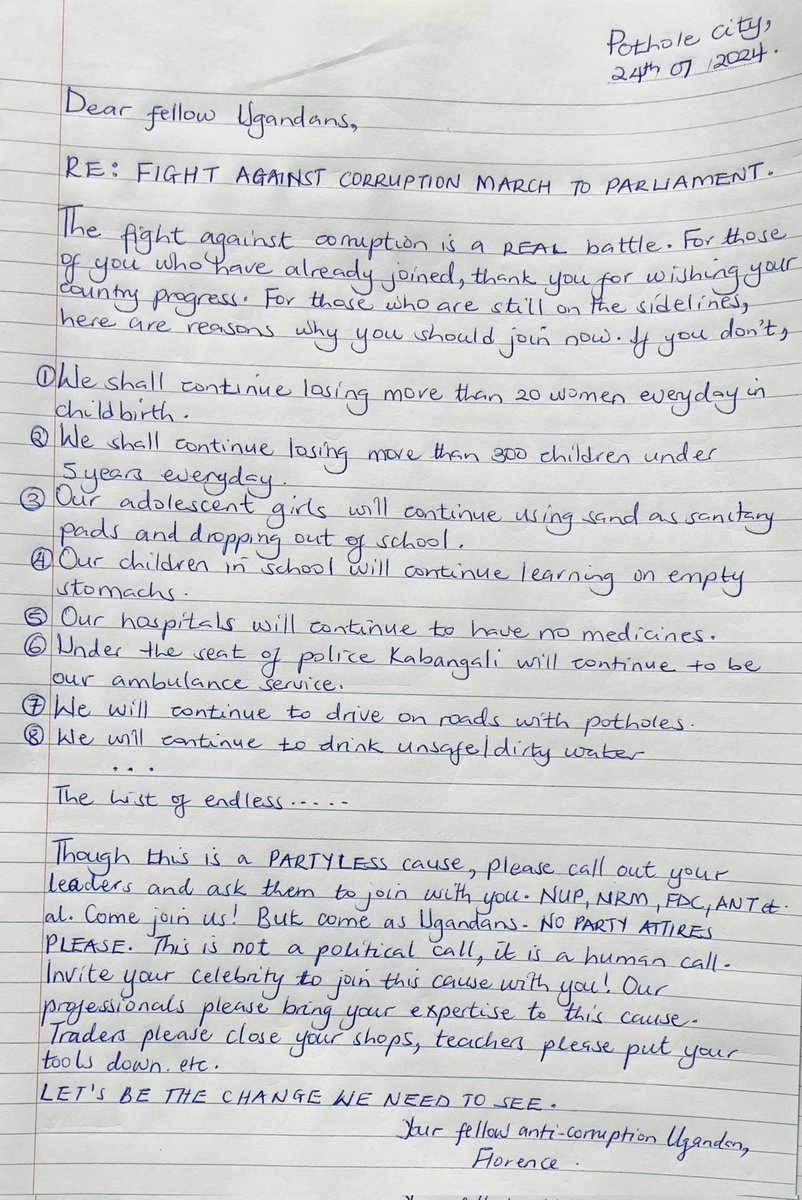 Pothole city,
24th 07 /2024.
Dear fellow Ugandans,
RE: FIGHT AGAINST CORRUPTION MARCH TO PARLIAMENT.
The fight against corruption is a REAL battle. For those
of you who have already joined, thank you for wishing your
country progress. For those who are still on the sidelines,
here are reasons why you should join now. If you don't,
① We shall continue losing more than 20 women everyday in
childbirth.
② We shall continue losing more than 300 children under
5 years everyday.
③ Our adolescent girls will continue using sand as sanitary
pads and dropping out of school.
④ Our children in school will continue learning on empty
stomachs.
⑤ Our hospitals will continue to have no medicines.
⑥ Under the seat of police Kabangali will continue to be
our ambulance service.
⑦ We will continue to drive on roads with potholes.
⑧ We will continue to drink unsafe/dirty water
...
The list of endless.....
Though this is a PARTYLESS cause, please call out your
leaders and ask them to join with you. NUP, NRM, FDC, ANT et.
al. Come join us! But come as Ugandans. NO PARTY ATTIRES
PLEASE. This is not a political call, it is a human call.
Invite your celebrity to join this cause with you! Our
professionals please bring your expertise to this cause.
Traders please close your shops, teachers please put your
tools down. etc.
LET'S BE THE CHANGE WE NEED TO SEE.
Your fellow anti-corruption Ugandan,
Florence.